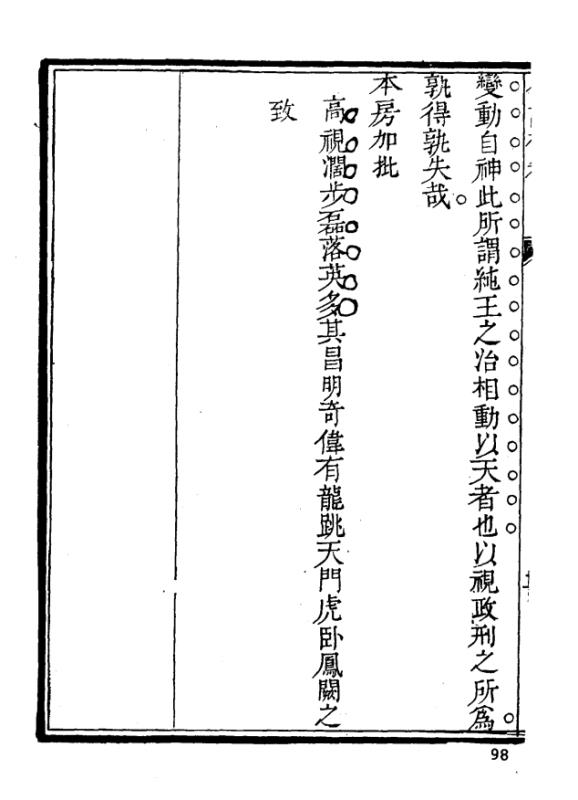 變動自神此所謂純王之治相動以天者也以視政刑之所爲
孰得孰失哉
本房加批
高視濶步磊落英多其昌明奇偉有龍跳天門虎卧鳳闕之
致
98